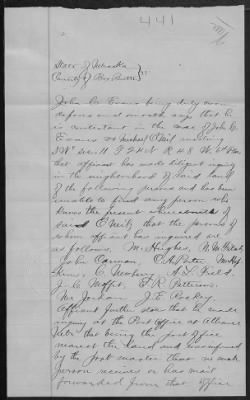 441
State of Nebraska
County of Box Butte } ss
John C. Evans being duly sworn
deposes and on oath says that he
is contestant in the case of John C.
Evans vs Michael O'Neil involving
NW Sec 11 T 24 N R 48 W 6th P.M.
that affiant has made diligent inquiry
in the neighborhood of said land
of the following persons and has been
unable to find any person who
knows the present whereabouts of
said O'Neil, that the persons of
whom affiant made inquiry at are
as follows, M. Hughes,
John Cannon, C. A. Peter,
C. Newberry, A. L. Field,
J. C. Moffit, F. R. Petterson,
Mr Jordan J. E. Roskey.
Affiant further says that he made
inquiry at the Post Office at Alliance
Nebr that being the post office
nearest the land and was informed
by the post master that no such
person receives or has mail
forwarded from that office